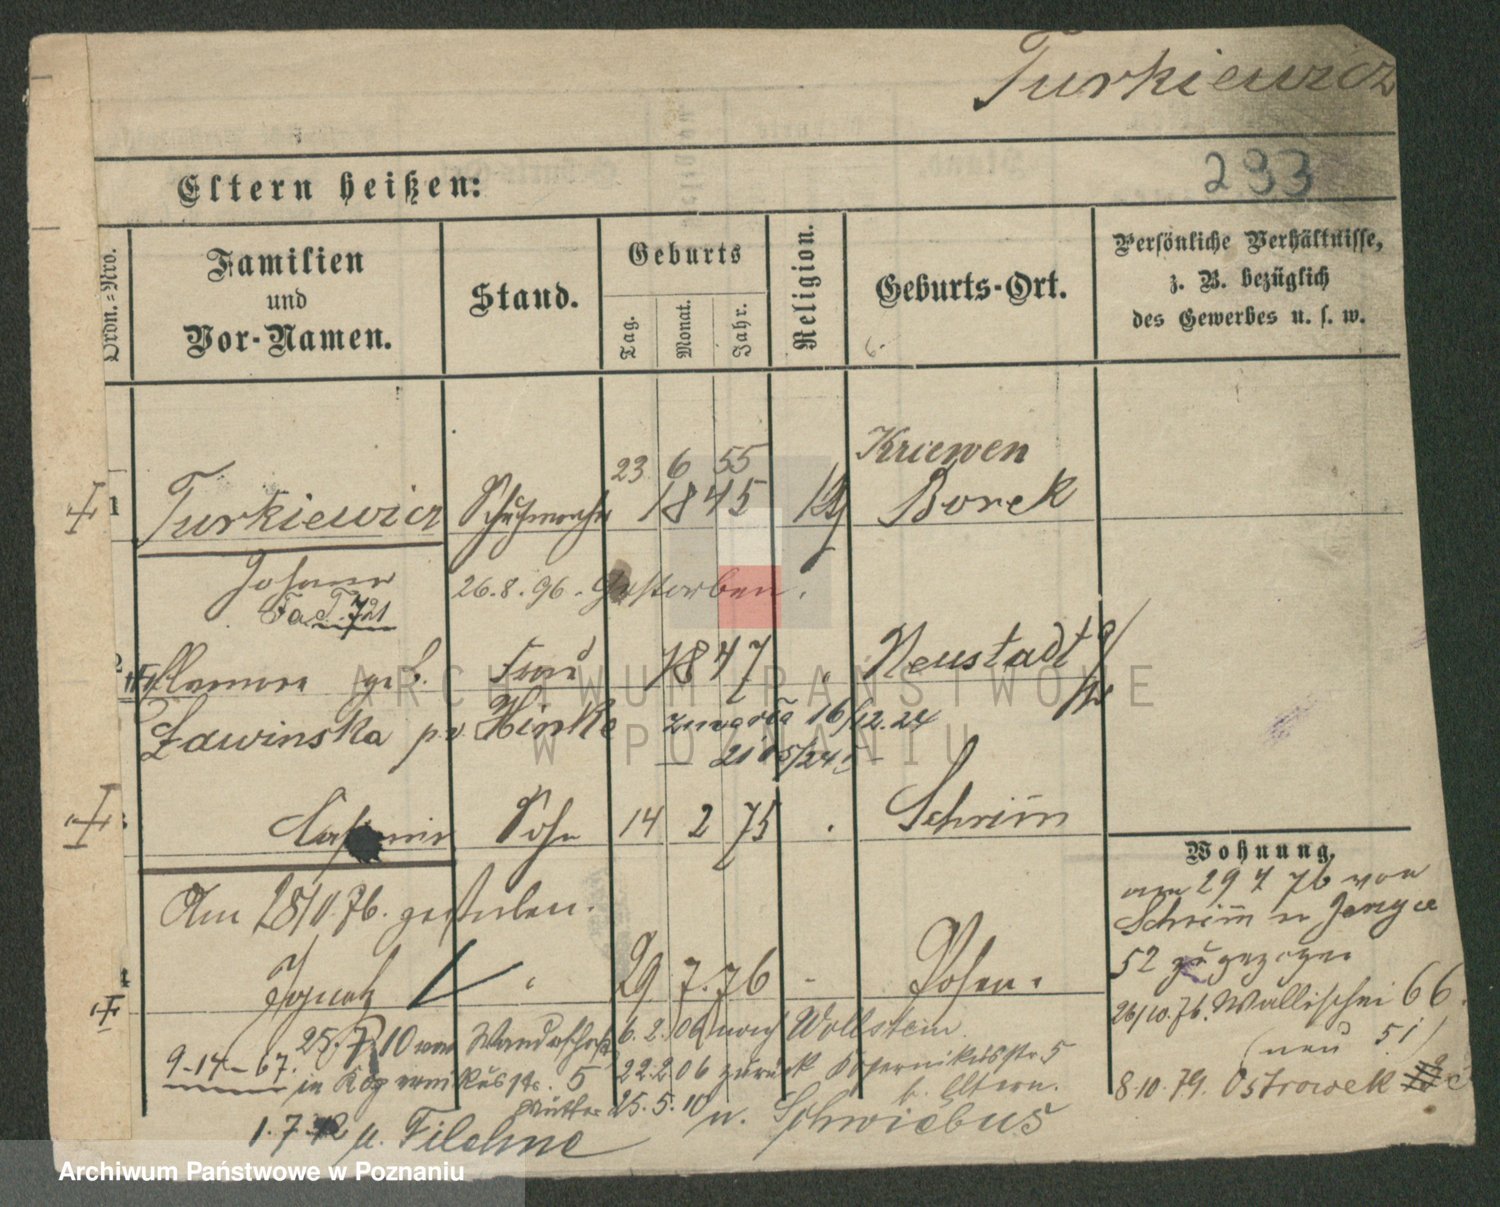 Turkiewicz
293
Eltern heißen:
Ordn.=Nro.
Familien
und
Vor-Namen.
Stand.
Geburts
Tag.
Monat.
Jahr.
Religion.
Geburts-Ort.
Persönliche Verhältnisse,
z. B. bezüglich
des Gewerbes u. s. w.
Kriewen
23 6 55
1 Turkiewicz 1845 Borek
Johann 26.8.96. Gestorben.
721
2 geb. Frau 1847 Neustadt
Zawinska Hinke 16/12.24
14 2 75 Schrimm
Sohn
Am 28/10.76. gestorben.
Wohnung.
am 29 7 76 von
Schrimm n Jerzyce
52 zugezogen
Ignatz 29 7. 76 - Posen.
26/10.76. Wallischei 66.
(neu 51)
25.7.10 von Wanderschaft 6.2.06 nach Wollstein
9-14-67. in Kopernikusstr. 5 22.2.06 zurück Kopernikusstr 5
b. Eltern.
8.10.79. Ostrowek
Mutter 25.5.10 n. Schwiebus
1.7.12 n. Filehne
ARCHIWUM PAŃSTWOWE
W POZNANIU
Archiwum Państwowe w Poznaniu